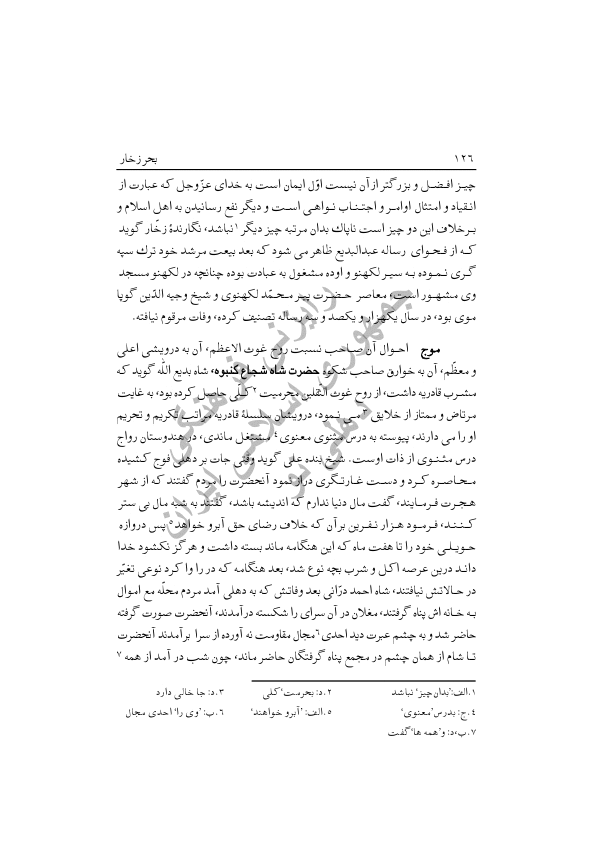 ١٢٦ بحر زخار
چیـز افـضــل و بزرگتر از آن نیست اوّل ایمان است به خدای عزّوجل که عبارت از
انـقیاد و امتثال اوامـر و اجتـنـاب نـواهـی اسـت و دیگر نفع رسانیدن به اهل اسلام و
بـرخلاف این دو چیز است ناپاک بدان مرتبه چیز دیگر ١نباشد، نگارندۀ زخّار گوید
کـه از فحـوای رساله عبدالبدیع ظاهر می شود که بعد بیعت مرشد خود ترك سپه
گـری نـمـوده بـه سیـر لکهنو و اوده مشغول به عبادت بوده چنانچه در لکهنو مسجد
وی مشهـور است، معاصر حضـرت پیر مـحـمّد لکهنوی و شیخ وجیه الدّین گوپا
موی بود، در سال یکهـزار و یکصد و سه رساله تصنیف کرده، وفات مرقوم نیافته.
موج احـوال آن صـاحب نسبت روح غوث الاعظم، آن به درویشی اعلی
و معظّم، آن به خوارق صاحب شکوه حضرت شاه شجاع کنبوه، شاه بدیع اللّه گوید که
مشـرب قادریه داشت، از روح غوث الثّقلین محرمیت ٢کلّی حاصل کرده بود، به غایت
مرتاض و ممتاز از خلایق ٣مـی نـمود، درویشان سلسلۀ قادریه مراتب تکریم و تحریم
او را می دارند، پیوسته به درس مثنوی معنوی ٤ مشتغل ماندی، در هندوستان رواج
درس مثـنـوی از ذات اوست. شیخ بنده علی گوید وقتی جات بر دهلی فوج کشیده
مـحـاصـره کـرد و دسـت غـارتـگـری دراز نمود آنحضرت را مردم گفتند که از شهر
هـجـرت فـرمـایند، گفت مال دنیا ندارم که اندیشه باشد، گفتند به شبه مال بی ستر
کـنـنـد، فـرمـود هـزار نـفـرین بر آن که خلاف رضای حق آبرو خواهد٥ پس دروازه
حـویـلـی خود را تا هفت ماه که این هنگامه ماند بسته داشت و هرگز نکشود خدا
دانـد درین عرصه اکـل و شرب بچه نوع شد، بعد هنگامه که در را وا کرد نوعی تغیّر
در حـالاتـش نیافتند، شاه احمد درّانی بعد وفاتش که به دهلی آمد مردم محلّه مع اموال
بـه خـانه اش پناه گرفتند، مغلان در آن سرای را شکسته درآمدند، آنحضرت صورت گرفته
حاضر شد و به چشم عبرت دید احدی ٦مجال مقاومت نه آورده از سرا برآمدند آنحضرت
تـا شام از همان چشم در مجمع پناه گرفتگان حاضر ماند، چون شب در آمد از همه ٧
١. الف: ‘بدان چیز’ نباشد ٢. د: بحرست‘ کلی ٣. د: جا خالی دارد
٤. ج: بدرس ’معنوی‘ ٥. الف: ’آبرو خواهند‘ ٦. ب: ’وی را‘ احدی مجال
٧. ب، د: و‘همه ها‘ گفت
جمهوری اسلامی ایران
رایزنی فرهنگی
دهلی نو